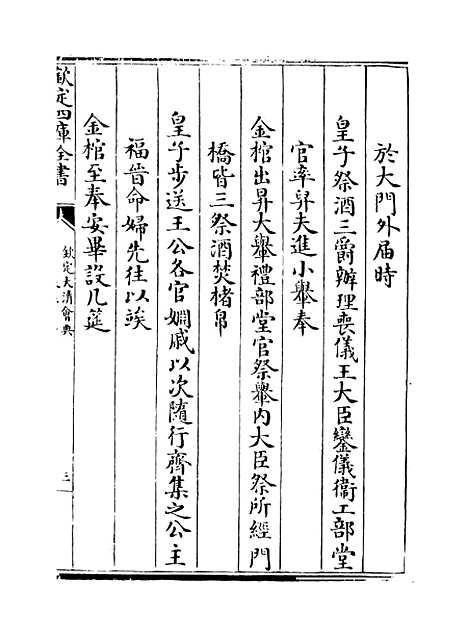 於大門外届時
皇子祭酒三爵辦理喪儀王大臣鑾儀衞工部堂
官率舁夫進小轝奉
金棺出昇大轝禮部堂官祭轝内大臣祭所經門
橋皆三祭酒焚楮帛
皇子步送王公各官嫺戚以次隨行齊集之公主
福晉命婦先往以竢
金棺至奉安畢設几筵
欽定四庫全書
欽定大清會典
三